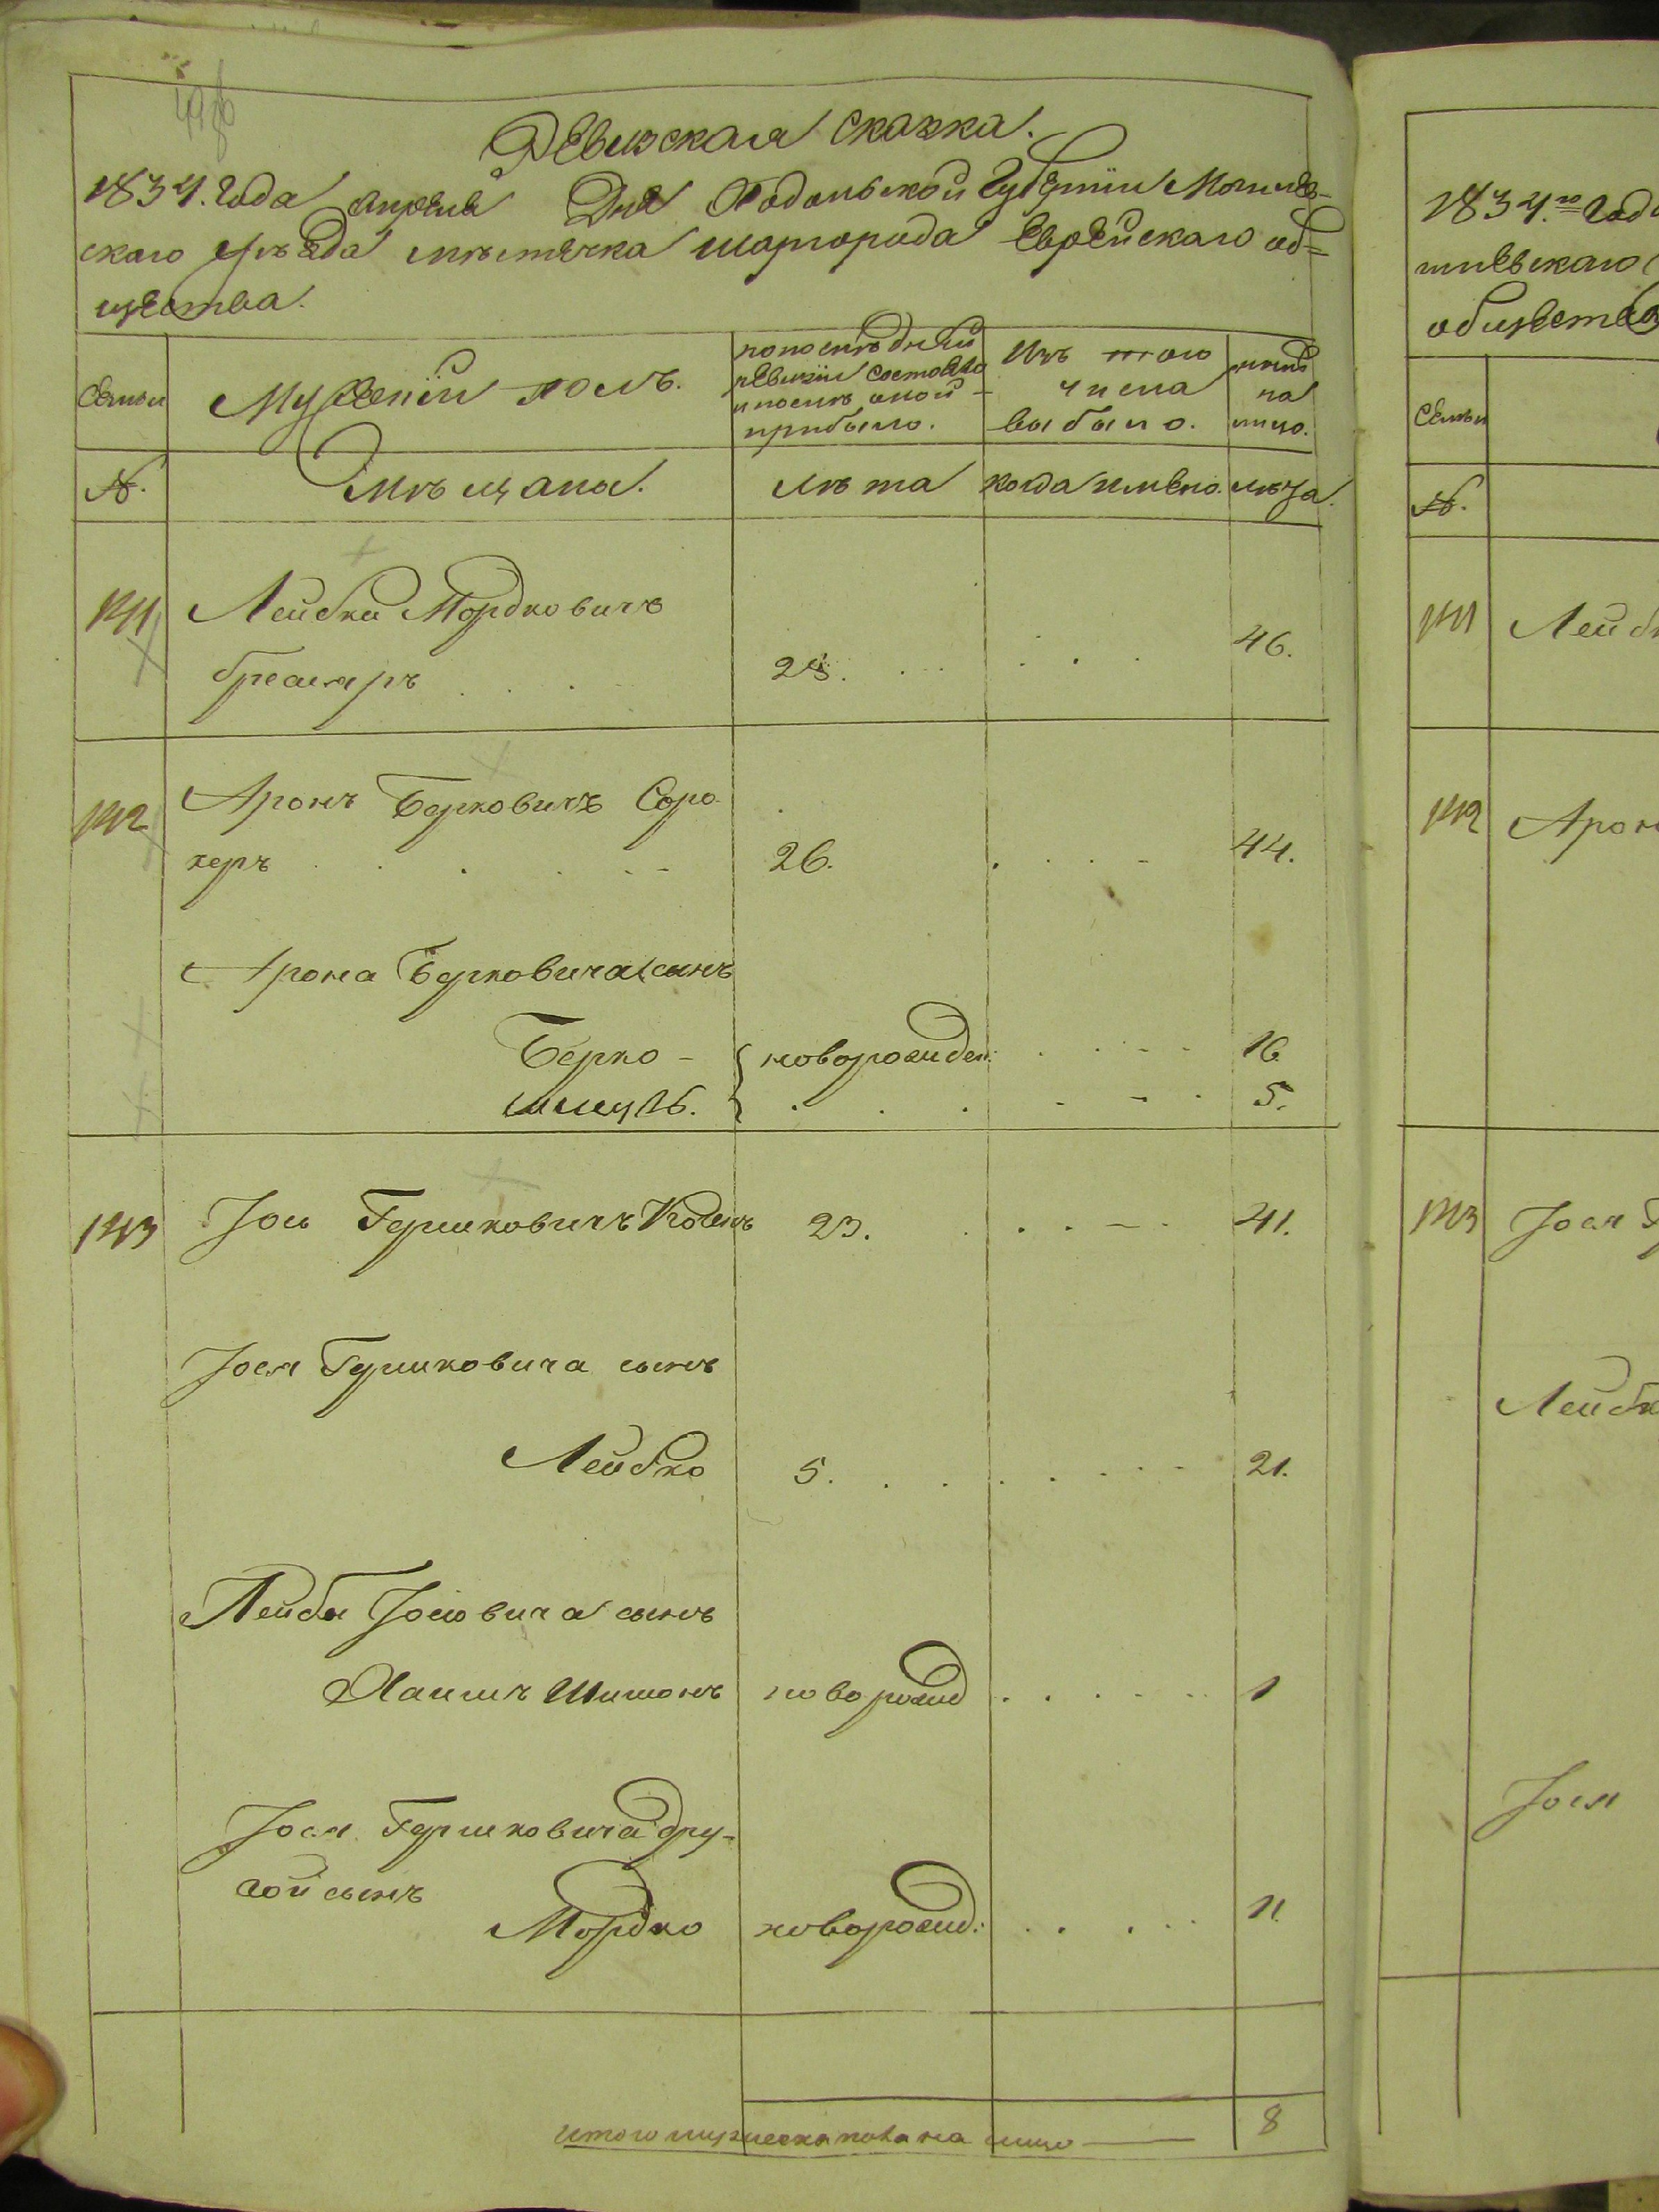 Ревизская сказка.
1834. Года апреля Дня Подольской Губерніи Могилев-
скаго уѣзда мѣстечка шаргорода Еврейскаго об=
щества.
Семьи
Мужескій полъ.
по послѣдней
ревизіи состояло
и послѣ оной
прибыло.
Изъ того
числа
выбыло.
нынѣ
на
лицо.
№.
Мѣщане.
Лѣта
когда имено.
лѣта.
141
Лейбки Мордковичъ
46.
142
Аронъ Берковичъ Соро-
керъ
26.
44.
Арона Берковича сынъ
Берко -
новорожден:
16
Шмуль.
5.
143
Іось Гершковичъ
23.
41.
Іося Гершковича сынъ
Лейбко
5.
21.
Лейбы Іосиовича сынъ
Хаимъ Шимонъ
новорожд
1
Іося Гершковича дру-
гой сынъ
Мордко
новорожд:
11.
итого мужеска пола на лицо
8
1834.го Года
общества
Семьи
№.
141
Лейб
142
Арон
143
Іося Г
Лейбк
Іося